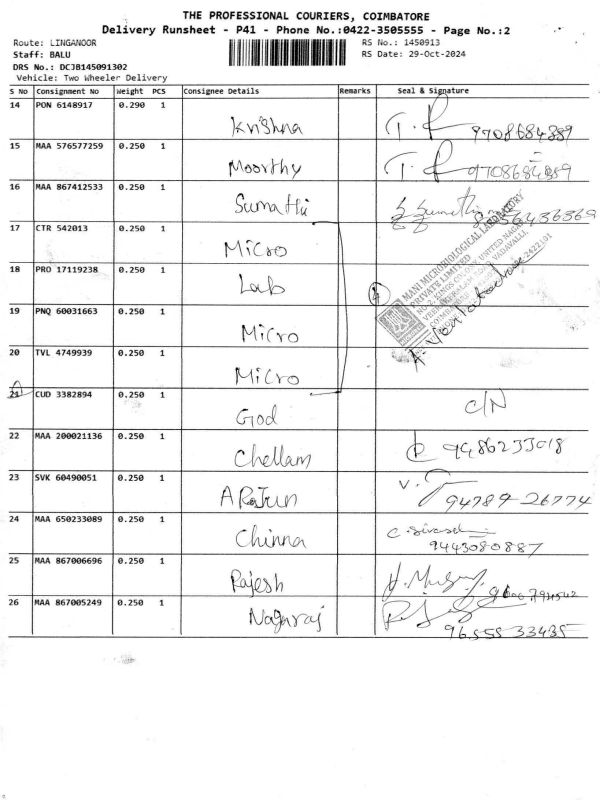 THE PROFESSIONAL COURIERS, COIMBATORE
Delivery Runsheet - P41 - Phone No.:0422-3505555 - Page No.:2
Route: LINGANOOR RS No.: 1450913
Staff: BALU RS Date: 29-Oct-2024
DRS No.: DCJB145091302
Vehicle: Two Wheeler Delivery
S No Consignment No Weight PCS Consignee Details Remarks Seal & Signature
14 PON 6148917 0.290 1 Krishna 9708684889
15 MAA 576577259 0.250 1 Moorthy
16 MAA 867412533 0.250 1 Sumathi Sumathi
17 CTR 542013 0.250 1 Micro
18 PRO 17119238 0.250 1 Lab 4
MANI MICROBIOLOGICAL LABORATORY
PRIVATE LIMITED
19 PNQ 60031663 0.250 1 Micro
20 TVL 4749939 0.250 1 Micro
21 CUD 3382894 0.250 1 God C/N
22 MAA 200021136 0.250 1 Chellam 9486233018
23 SVK 60490051 0.250 1 A RaJun V. 94789-26774
24 MAA 650233089 0.250 1 Chinna 9443080887
25 MAA 867006696 0.250 1 Rajesh
26 MAA 867005249 0.250 1 Nagaraj 96555 33435